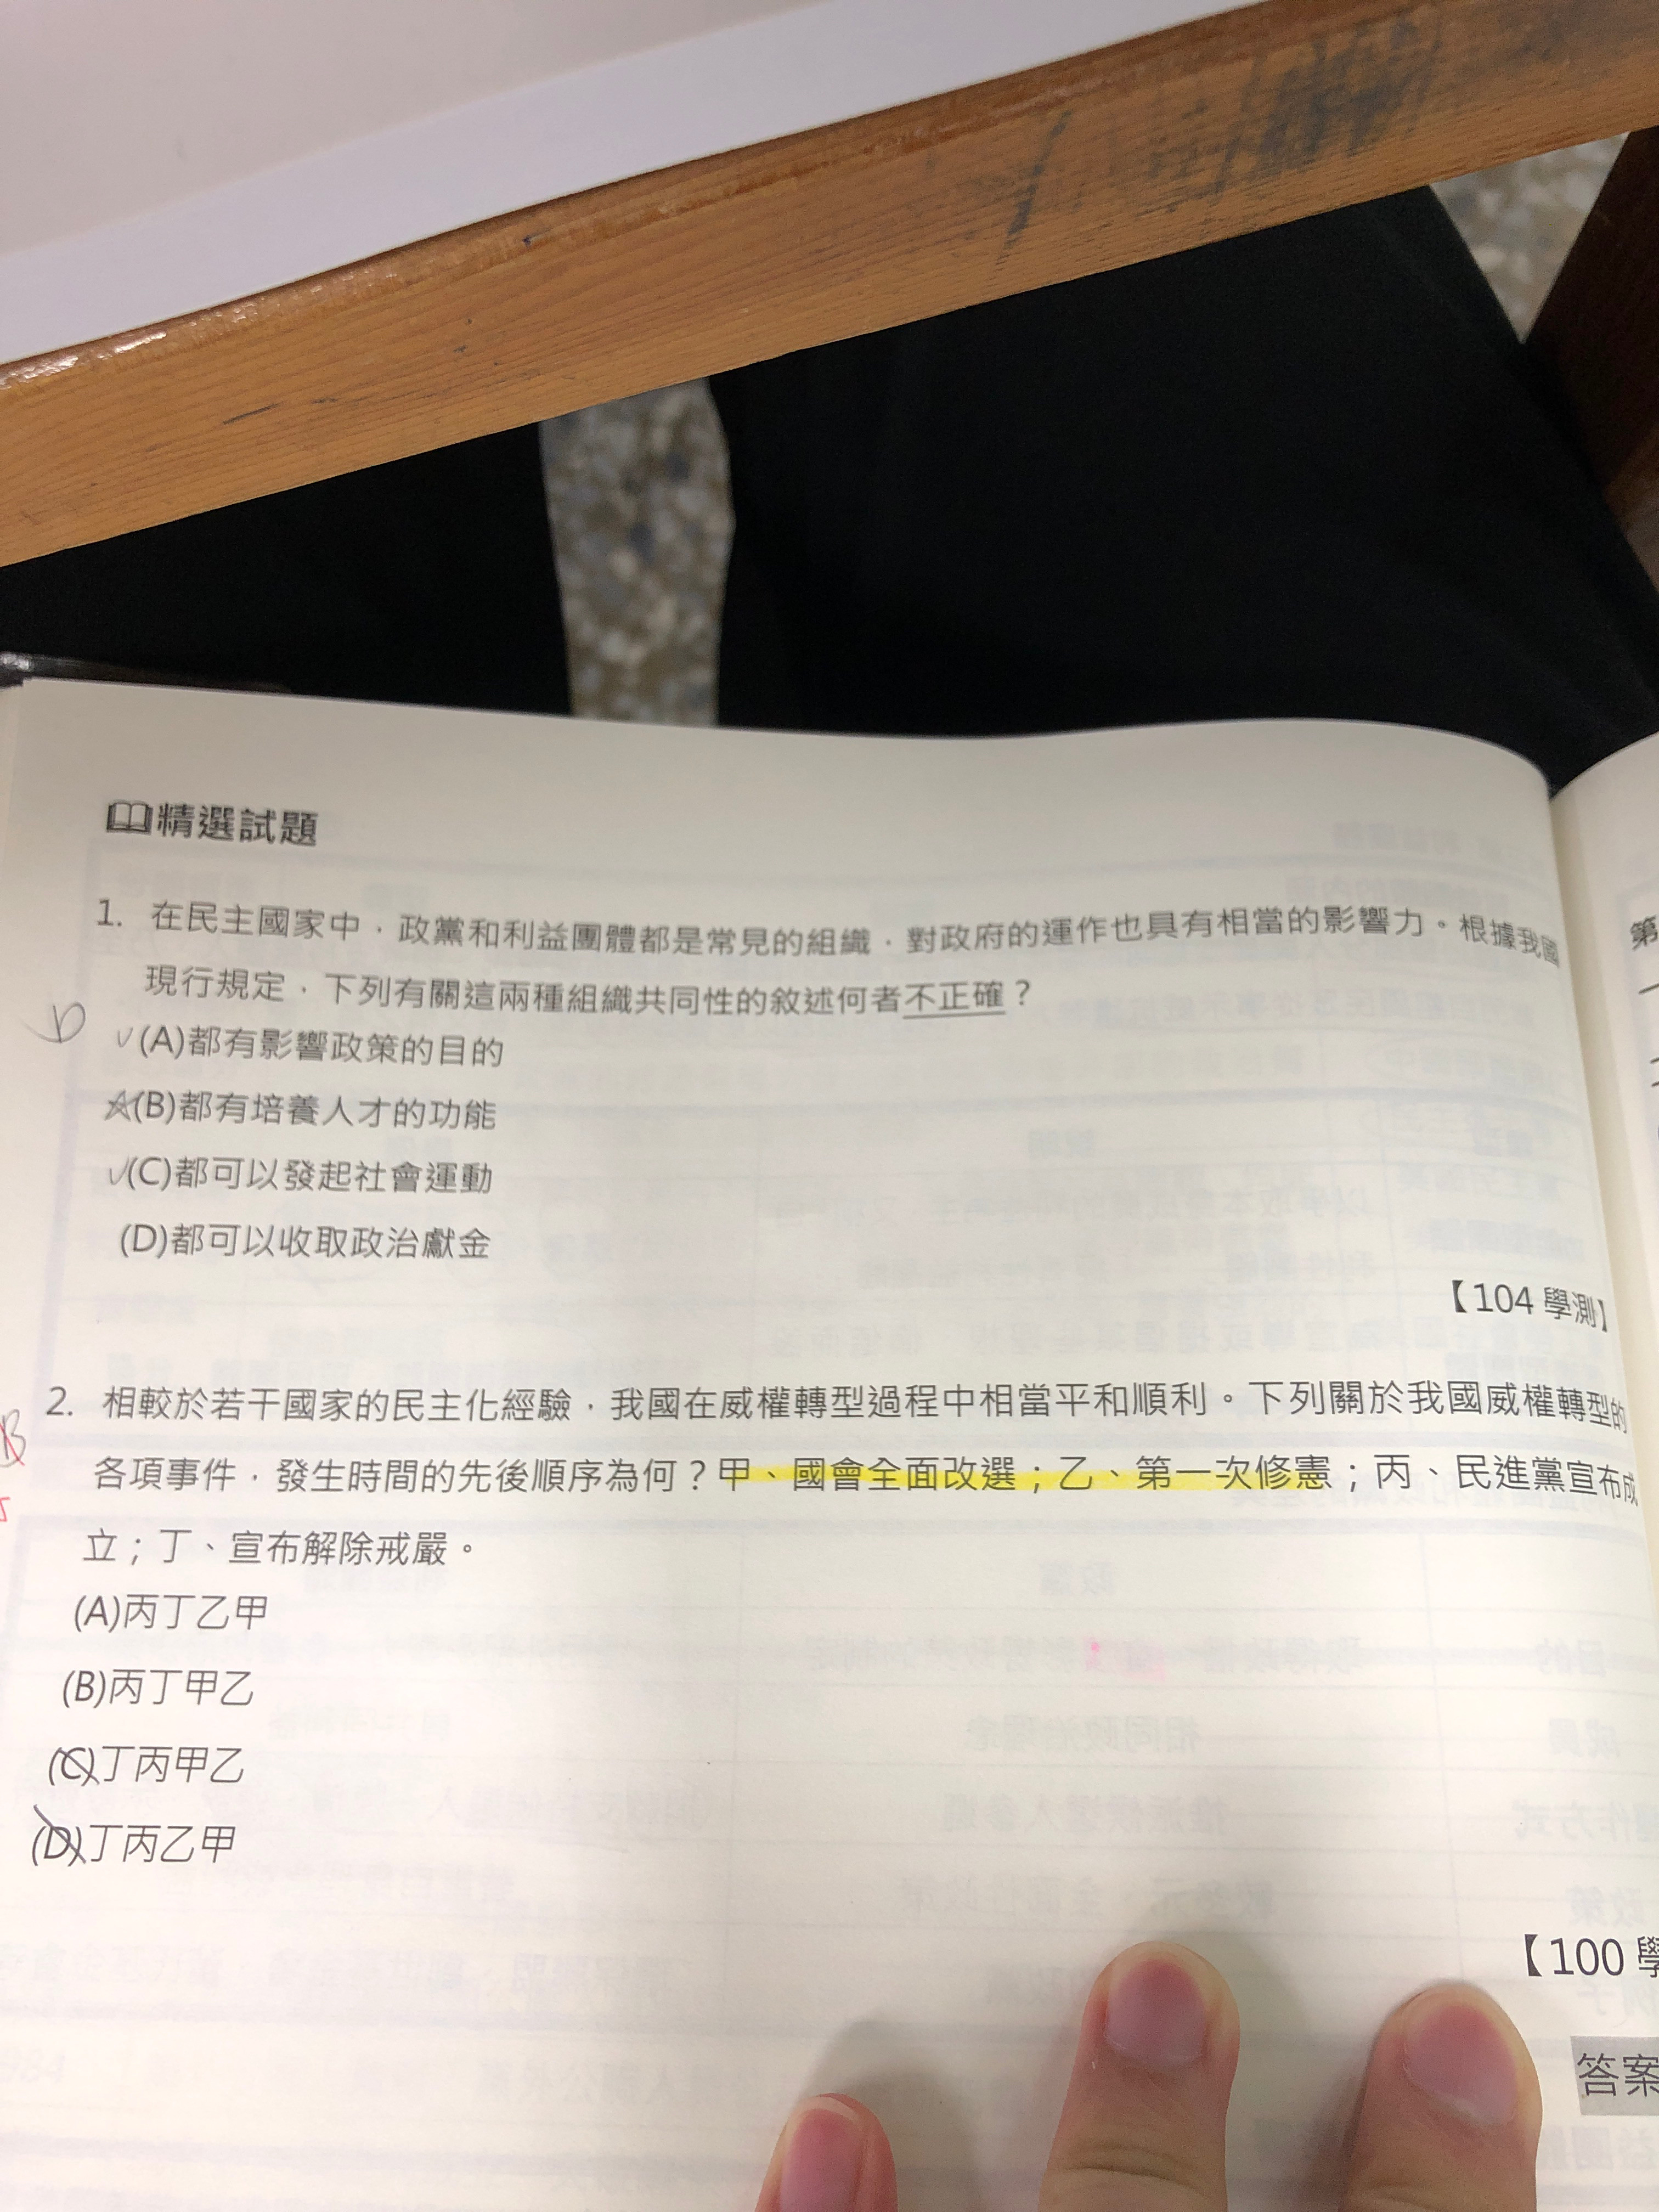 精選試題
1. 在民主國家中，政黨和利益團體都是常見的組織，對政府的運作也具有相當的影響力。根據我國
現行規定，下列有關這兩種組織共同性的敘述何者不正確？
D
(A)都有影響政策的目的
(B)都有培養人才的功能
(C)都可以發起社會運動
(D)都可以收取政治獻金
【104 學測】
2. 相較於若干國家的民主化經驗，我國在威權轉型過程中相當平和順利。下列關於我國威權轉型的
B
各項事件，發生時間的先後順序為何？甲、國會全面改選；乙、第一次修憲；丙、民進黨宣布成
立；丁、宣布解除戒嚴。
(A)丙丁乙甲
(B)丙丁甲乙
(C)丁丙甲乙
(D)丁丙乙甲
【100 學
答案
第